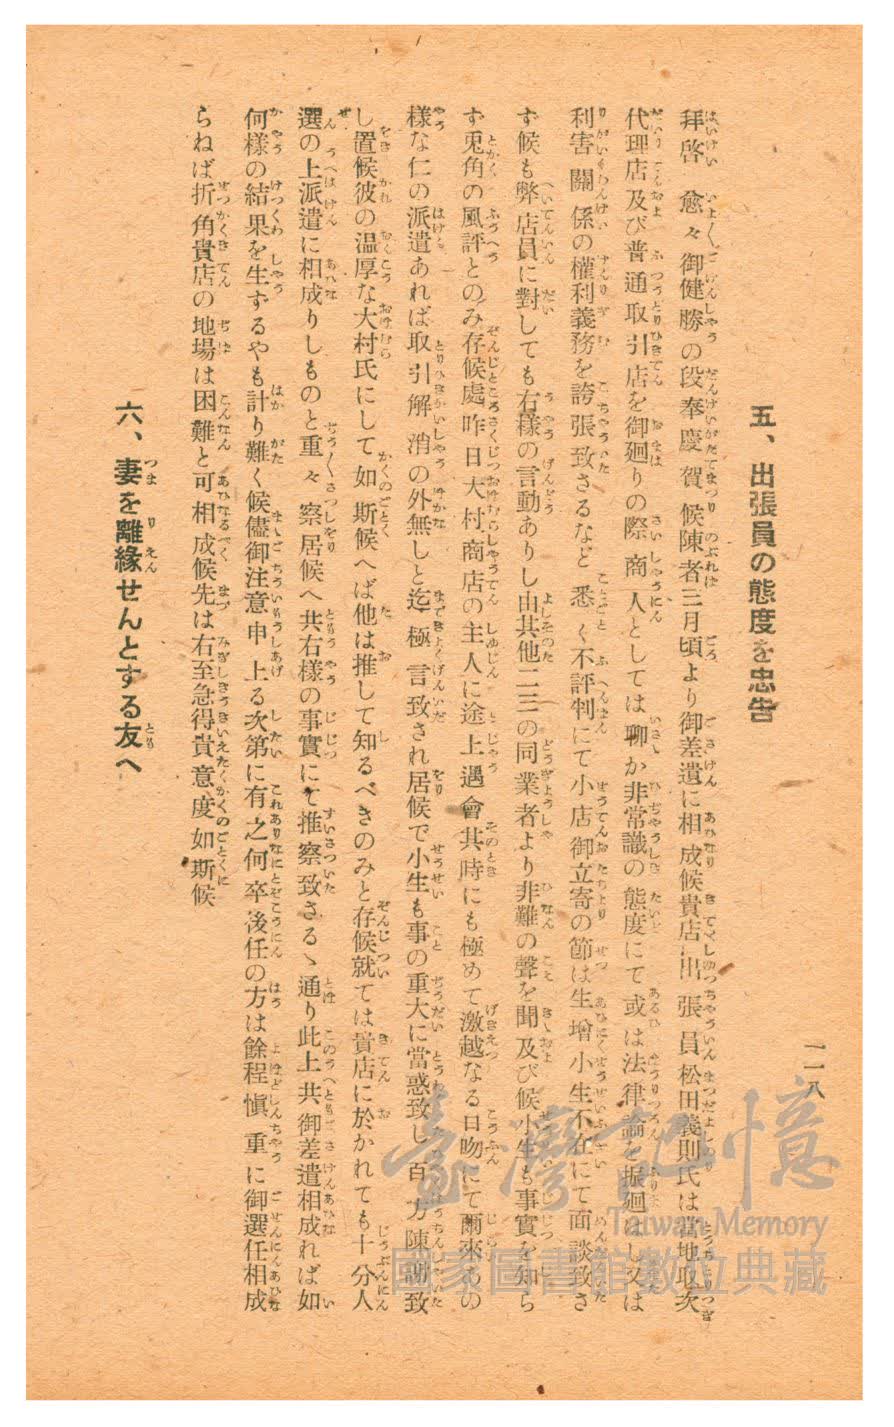 一一八
五、出張員の態度を忠告
拜啓 愈々御健勝の段奉慶賀候陳者三月頃より御差遣に相成候貴店出張員松田義則氏は當地取次
代理店及び普通取引店を御廻りの際商人としては聊か非常識の態度にて或は法律論を振廻はし又は
利害關係の權利義務を誇張致さるなど悉く不評判にて小店御立寄の節は生增小生不在にて面談致さ
ず候も弊店員に對しても右樣の言動ありし由其他二三の同業者より非難の聲を聞及び候小生も事實を知ら
ず兎角の風評とのみ存候處昨日大村商店の主人に途上遇會其時にも極めて激越なる口吻にて爾來あの
樣な仁の派遣あれば取引解消の外無しと迄極言致され居候で小生も事の重大に當惑致し百方陳謝致
し置候彼の溫厚な大村氏にして如斯候へば他は推して知るべきのみと存候就ては貴店に於かれても十分人
選の上派遣に相成りしものと重々察居候へ共右樣の事實にて推察致さるゝ通り此上共御差遣相成れば如
何樣の結果を生ずるやも計り難く候儘御注意申上る次第に有之何卒後任の方は餘程愼重に御選任相成
らねば折角貴店の地場は困難と可相成候先は右至急得貴意度如斯候
六、妻を離緣せんとする友へ
臺灣記憶
Taiwan Memory
國家圖書館數位典藏